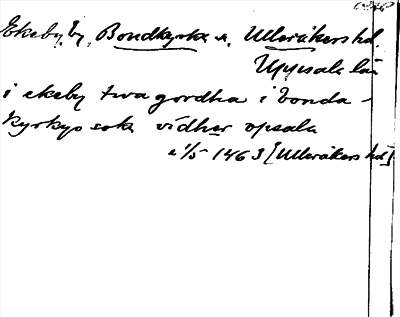 Ekeby, by, Bondkyrka s. Ulleråkers hd.
Uppsala län
i ekeby twa gordha i bonda-
kyrkyo sokn vidher opsala
1/5 1463 [Ulleråkers hd]